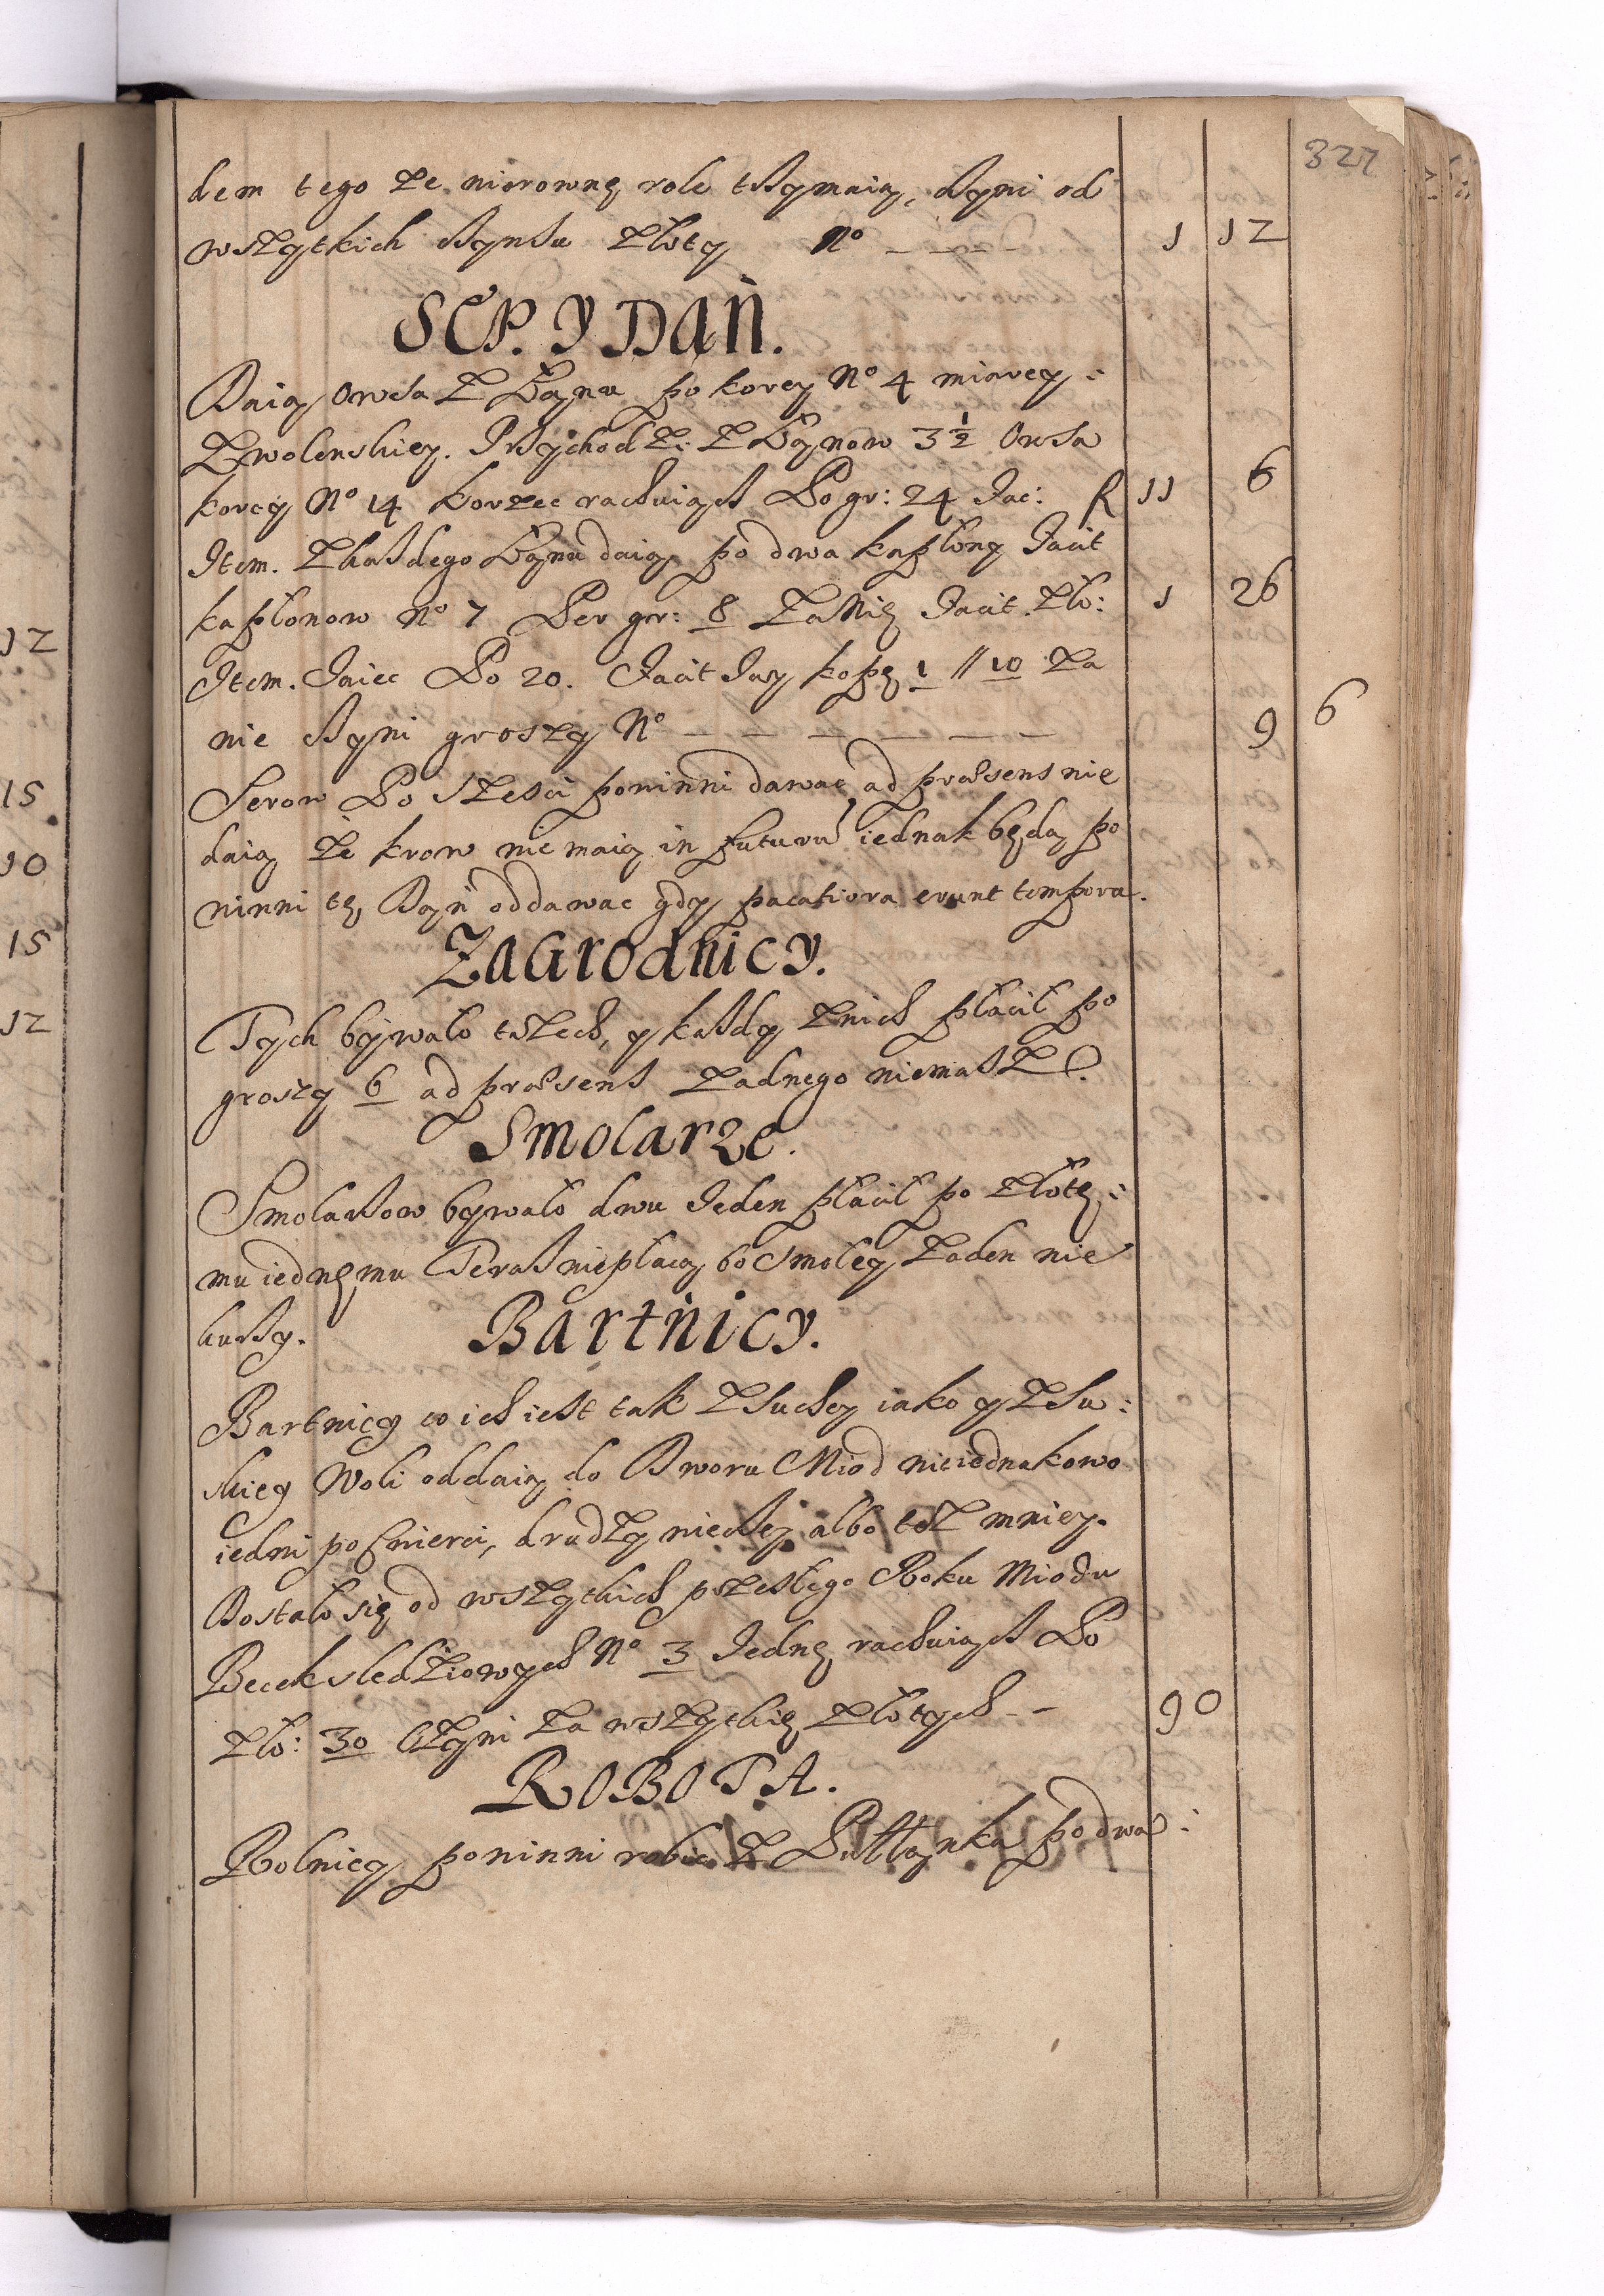 327
dem tego że nierownę role trzymaią, czyni od
wszytkich czynszu złoty No — — — 1 12
SEP. Y DAŃ.
Daią Owsa z Łanu po korcy No 4 miarey:
Zwolenskiey. Przychodzi z Łanow 3 1/2 Owsa
korcy No 14 korzec rachuiącz Po gr: 24 Fac: f 11 6
Item. z każdego Łanu daią po dwa kapłony Facit
kapłonow No 7 Per gr: 8 za nię Facit. zło: 1 26
Item. Jaiec Po 20. Facit Jay kopę 1 // 10 za
nie czyni groszy No — — — — — — 9 6
Serow Po sześci powinni dawać, ad præsens nie
daią że krow nie maią in futurũ iednak będą po
winni tę Dań oddawac gdy pacatiora erunt tempora.
ZAGrodnicy.
Tych bywało trzech, y każdy z nich płacił po
groszy 6 ad præsens żadnego niemasz.
Smolarze.
Smolarzow bywało dwu Jeden płacił po złotę:
mu iednęmu Teraz nie płacą bo Smoley żaden nie
kurzy.
Bartnicy.
Bartnicy co ich iest tak z Suchey iako y z Su:
skiey Woli oddaią do Dworu Miod nieiednakowo
iedni po cwierci, drudzy więcey albo też mniey.
Dostało się od wszytkich przeszłego Roku Miodu
Beczek sledziowych No 3 Jednę rachuiącz Po
zło: 30 Czyni za wszytkię złotych - - 90
ROBOTA.
Rolnicy powinni robic z Pułłanka po dwa:
12
15
10
15
12